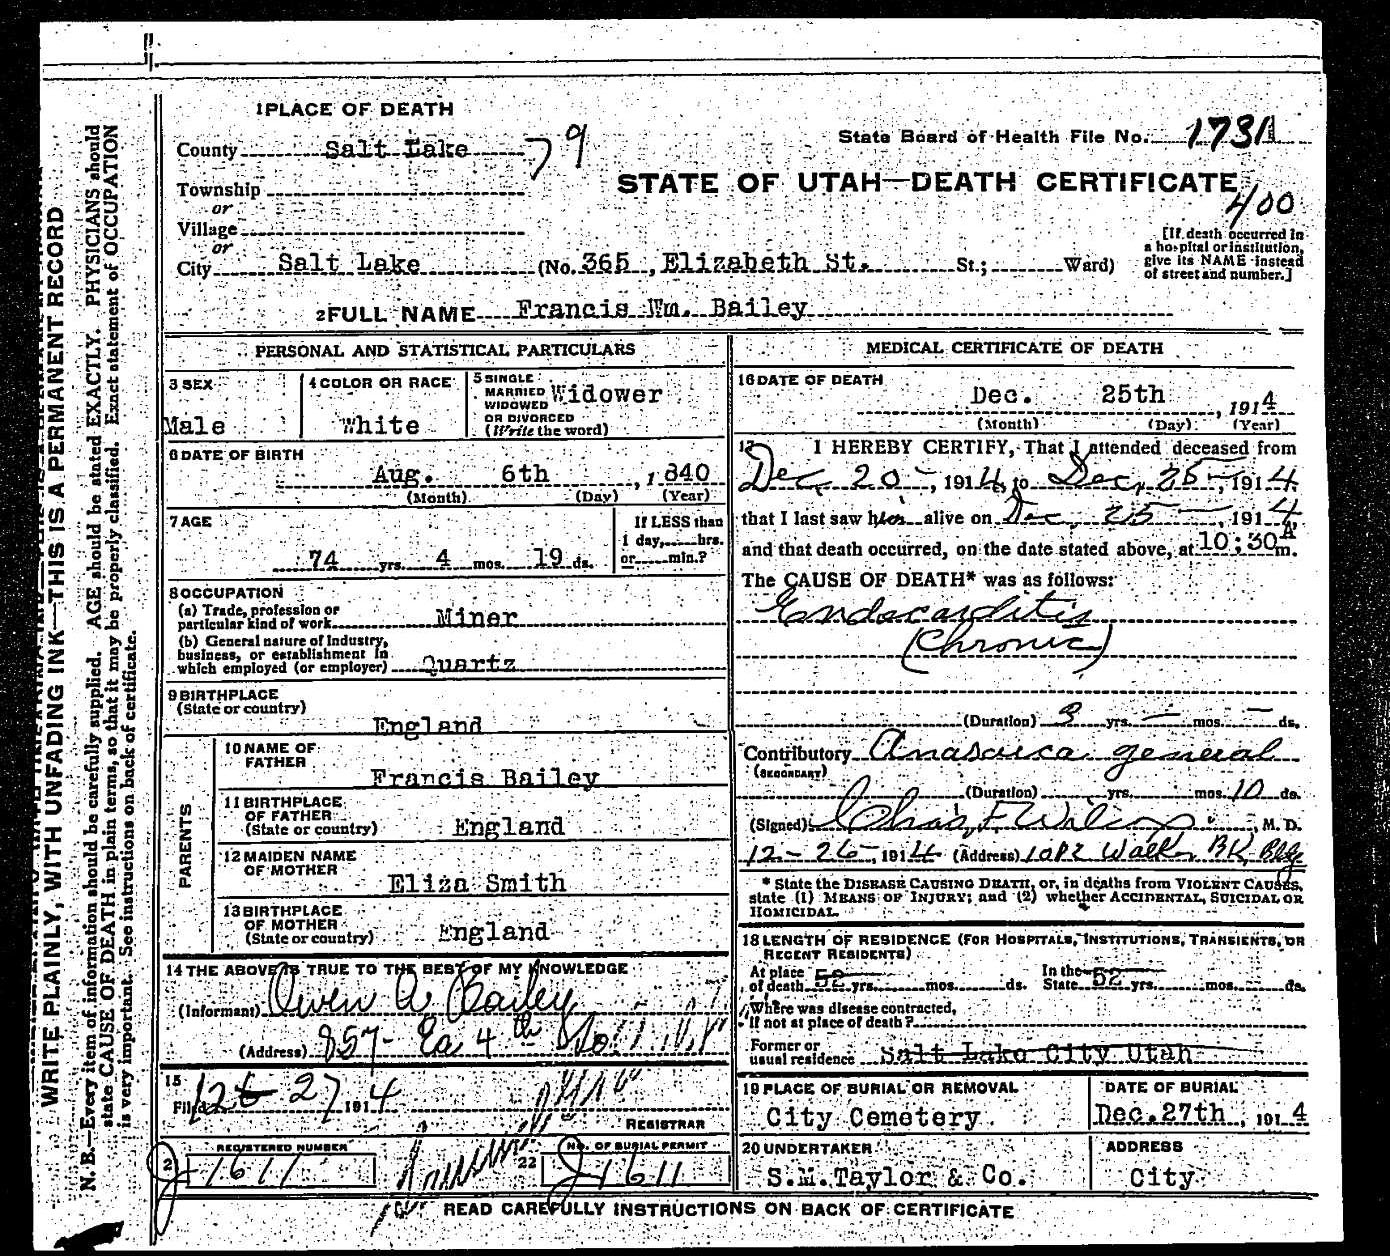 1 PLACE OF DEATH
County Salt Lake 79
State Board of Health File No. 1731
Township
or
STATE OF UTAH—DEATH CERTIFICATE
400
Village
or
City Salt Lake (No. 365, Elizabeth St. St.; Ward)
[If death occurred in
a hospital or institution,
give its NAME instead
of street and number.]
2 FULL NAME Francis Wm. Bailey
PERSONAL AND STATISTICAL PARTICULARS
3 SEX
Male
4 COLOR OR RACE
White
5 SINGLE
MARRIED
WIDOWED
OR DIVORCED
(Write the word)
Widower
6 DATE OF BIRTH
Aug. 6th, 1840
(Month) (Day) (Year)
7 AGE
74 yrs. 4 mos. 19 ds.
If LESS than
1 day, hrs.
or min.?
8 OCCUPATION
(a) Trade, profession or
particular kind of work Miner
(b) General nature of industry,
business, or establishment in
which employed (or employer) Quartz
9 BIRTHPLACE
(State or country)
England
PARENTS
10 NAME OF
FATHER
Francis Bailey
11 BIRTHPLACE
OF FATHER
(State or country) England
12 MAIDEN NAME
OF MOTHER
Eliza Smith
13 BIRTHPLACE
OF MOTHER
(State or country) England
14 THE ABOVE IS TRUE TO THE BEST OF MY KNOWLEDGE
(Informant) Owen A Bailey
(Address) 857- Ea 4th So.
15
Filed 12 27 1914
REGISTRAR
REGISTERED NUMBER
21 J-1611
NO. OF BURIAL PERMIT
22 J-1611
MEDICAL CERTIFICATE OF DEATH
16 DATE OF DEATH
Dec. 25th, 1914
(Month) (Day) (Year)
17 I HEREBY CERTIFY, That I attended deceased from
Dec, 20-, 1914, to Dec, 25-, 1914,
that I last saw him alive on Dec, 25-, 1914,
and that death occurred, on the date stated above, at 10:30 A m.
The CAUSE OF DEATH* was as follows:
Endocarditis
(Chronic)
(Duration) 3 yrs. — mos. — ds.
Contributory Anasarca general
(SECONDARY)
(Duration) yrs. mos. 10 ds.
(Signed) Chas. F. Wilcox, M. D.
12-26, 1914 (Address) 1082 Walker BK, Bldg
* State the DISEASE CAUSING DEATH, or, in deaths from VIOLENT CAUSES,
state (1) MEANS OF INJURY; and (2) whether ACCIDENTAL, SUICIDAL OR
HOMICIDAL.
18 LENGTH OF RESIDENCE (FOR HOSPITALS, INSTITUTIONS, TRANSIENTS, OR
RECENT RESIDENTS)
At place
of death 52 yrs. mos. ds. In the
State 52 yrs. mos. ds.
Where was disease contracted,
if not at place of death?
Former or
usual residence Salt Lake City Utah
19 PLACE OF BURIAL OR REMOVAL
City Cemetery
DATE OF BURIAL
Dec. 27th, 1914
20 UNDERTAKER
S.M. Taylor & Co.
ADDRESS
City
READ CAREFULLY INSTRUCTIONS ON BACK OF CERTIFICATE
WRITE PLAINLY, WITH UNFADING INK—THIS IS A PERMANENT RECORD
N. B.—Every item of information should be carefully supplied. AGE should be stated EXACTLY. PHYSICIANS should
state CAUSE OF DEATH in plain terms, so that it may be properly classified. Exact statement of OCCUPATION
is very important. See instructions on back of certificate.